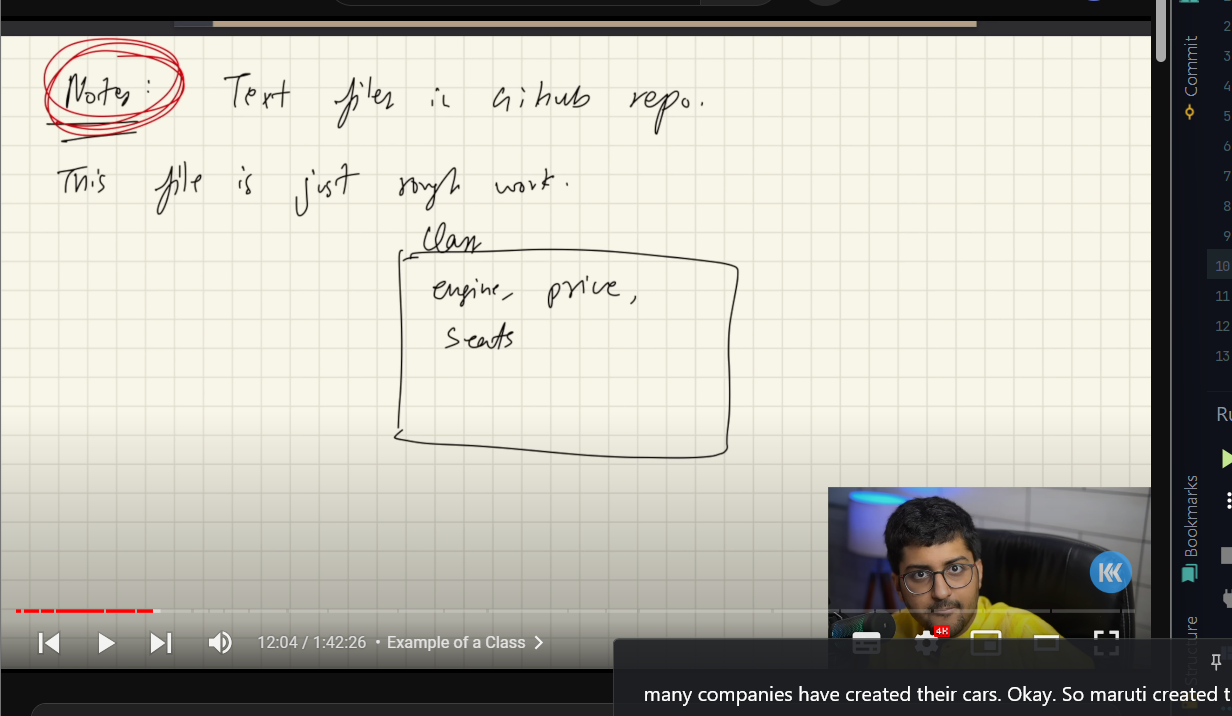 Notes: Text files in Github repo.
This file is just rough work.
Class
engine, price,
seats
12:04 / 1:42:26 • Example of a Class
4K
many companies have created their cars. Okay. So maruti created t
Commit
Bookmarks
Structure
2
3
4
5
6
7
8
9
10
11
12
13
Ru